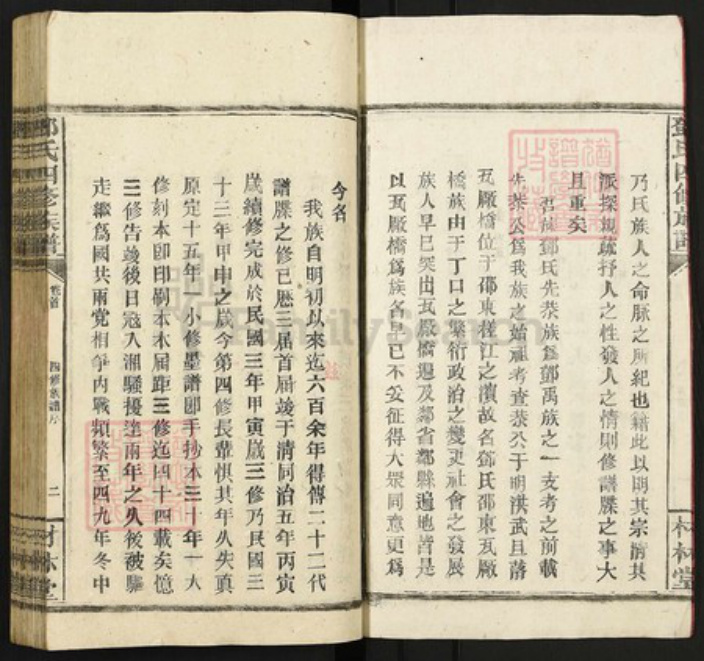 鄧氏四修族譜
材林堂
乃氏族人之命脉之所紀也藉此以明其宗清其
派探規疏抒人之性發人之情則修譜牒之事大
且重矣
鄧氏先恭族爲鄧禹族之一支考之前載
先恭公爲我族之始祖考查恭公于明洪武且落
瓦厰橋位于邵東檨江之濱故名鄧氏邵東瓦厰
橋族由于丁口之繁衍政治之變更社會之發展
族人早已突出瓦厰橋遍及鄰省鄰縣遍地皆是
以瓦厰橋爲族名早已不妥征得大眾同意更爲
今名
我族自明初以來迄六百余年得傳二十二代
譜牒之修已歷三屆首屆竣于清同治五年丙寅
歲續修完成於民國三年甲寅歲三修乃民國三
十三年甲申之歲今第四修長輩惧其年久失眞
原定十五年一小修墨譜卽手抄本三十年一大
修刻本卽印刷本本屆距三修迄四十四載矣憶
三修告竣後日寇入湘騷擾達兩年之久後被驅
走繼爲國共兩党相爭内戰頻繁至四九年冬中
鄧氏四修族譜
卷首
四修族譜序
二
材林堂
FamilySearch